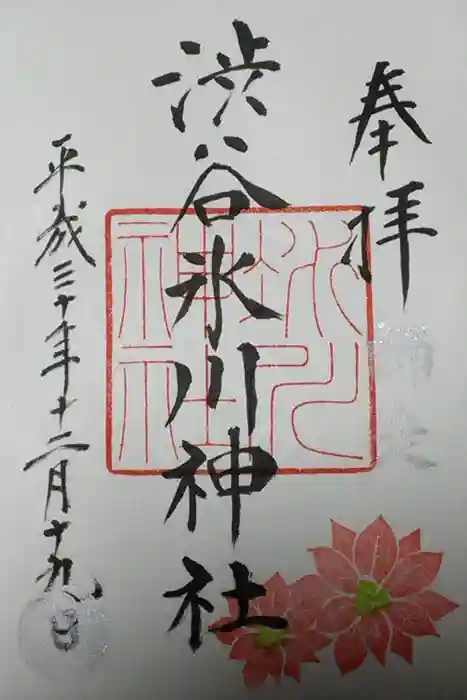 奉拝
渋谷氷川神社
氷川神社
平成三十年十二月十九日